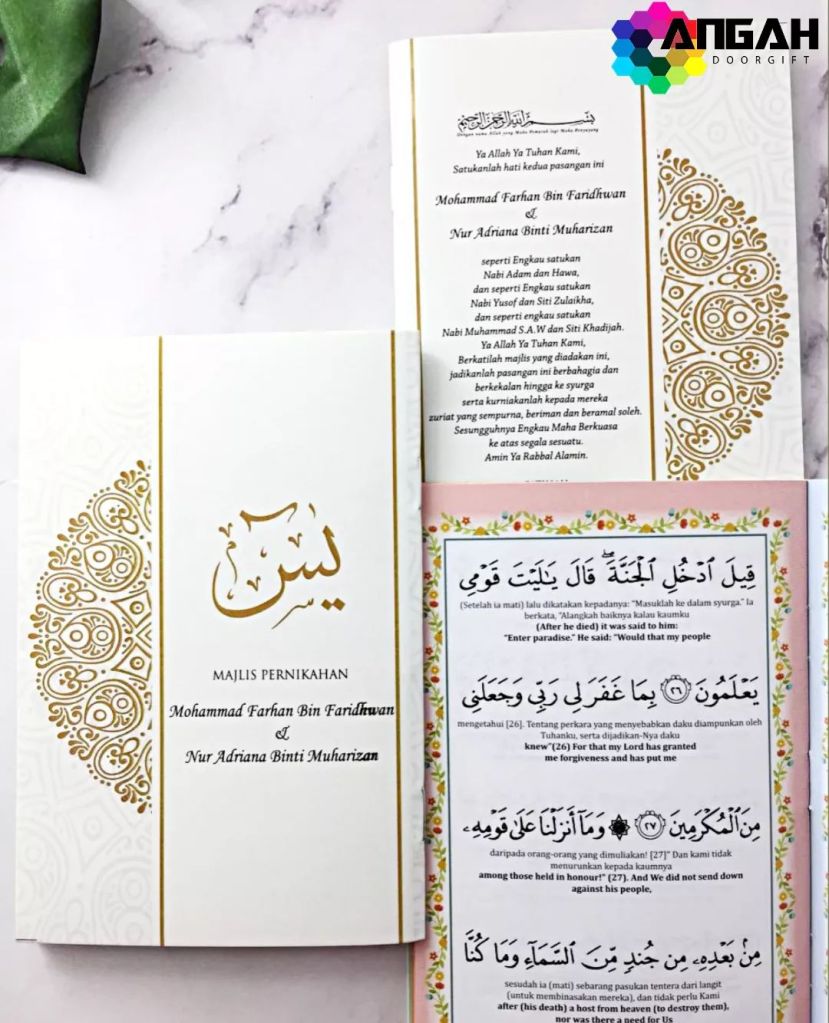 ANGAH
DOORGIFT
بِسْمِ اللَّهِ الرَّحْمَٰنِ الرَّحِيمِ
Dengan nama Allah yang Maha Pemurah lagi Maha Penyayang
Ya Allah Ya Tuhan Kami,
Satukanlah hati kedua pasangan ini
Mohammad Farhan Bin Faridhwan
&
Nur Adriana Binti Muharizan
seperti Engkau satukan
Nabi Adam dan Hawa,
dan seperti Engkau satukan
Nabi Yusof dan Siti Zulaikha,
dan seperti engkau satukan
Nabi Muhammad S.A.W dan Siti Khadijah.
Ya Allah Ya Tuhan Kami,
Berkatilah majlis yang diadakan ini,
jadikanlah pasangan ini berbahagia dan
berkekalan hingga ke syurga
serta kurniakanlah kepada mereka
zuriat yang sempurna, beriman dan beramal soleh.
Sesungguhnya Engkau Maha Berkuasa
ke atas segala sesuatu.
Amin Ya Rabbal Alamin.
يٰسٓ
MAJLIS PERNIKAHAN
Mohammad Farhan Bin Faridhwan
&
Nur Adriana Binti Muharizan
قِيلَ ٱدْخُلِ ٱلْجَنَّةَ ۖ قَالَ يَٰلَيْتَ قَوْمِى
(Setelah ia mati) lalu dikatakan kepadanya: "Masuklah ke dalam syurga." Ia
berkata, "Alangkah baiknya kalau kaumku
(After he died) it was said to him:
"Enter paradise." He said: "Would that my people
يَعْلَمُونَ ٢٦ بِمَا غَفَرَ لِى رَبِّى وَجَعَلَنِى
mengetahui [26]. Tentang perkara yang menyebabkan daku diampunkan oleh
Tuhanku, serta dijadikan-Nya daku
knew"(26) For that my Lord has granted
me forgiveness and has put me
مِنَ ٱلْمُكْرَمِينَ ٢٧ ۞ وَمَآ أَنزَلْنَا عَلَىٰ قَوْمِهِۦ
daripada orang-orang yang dimuliakan! [27]" Dan kami tidak
menurunkan kepada kaumnya
among those held in honour!" (27). And We did not send down
against his people,
مِنۢ بَعْدِهِۦ مِن جُندٍ مِّنَ ٱلسَّمَآءِ وَمَا كُنَّا
sesudah ia (mati) sebarang pasukan tentera dari langit
(untuk membinasakan mereka), dan tidak perlu Kami
after (his death) a host from heaven (to destroy them),
nor was there a need for Us